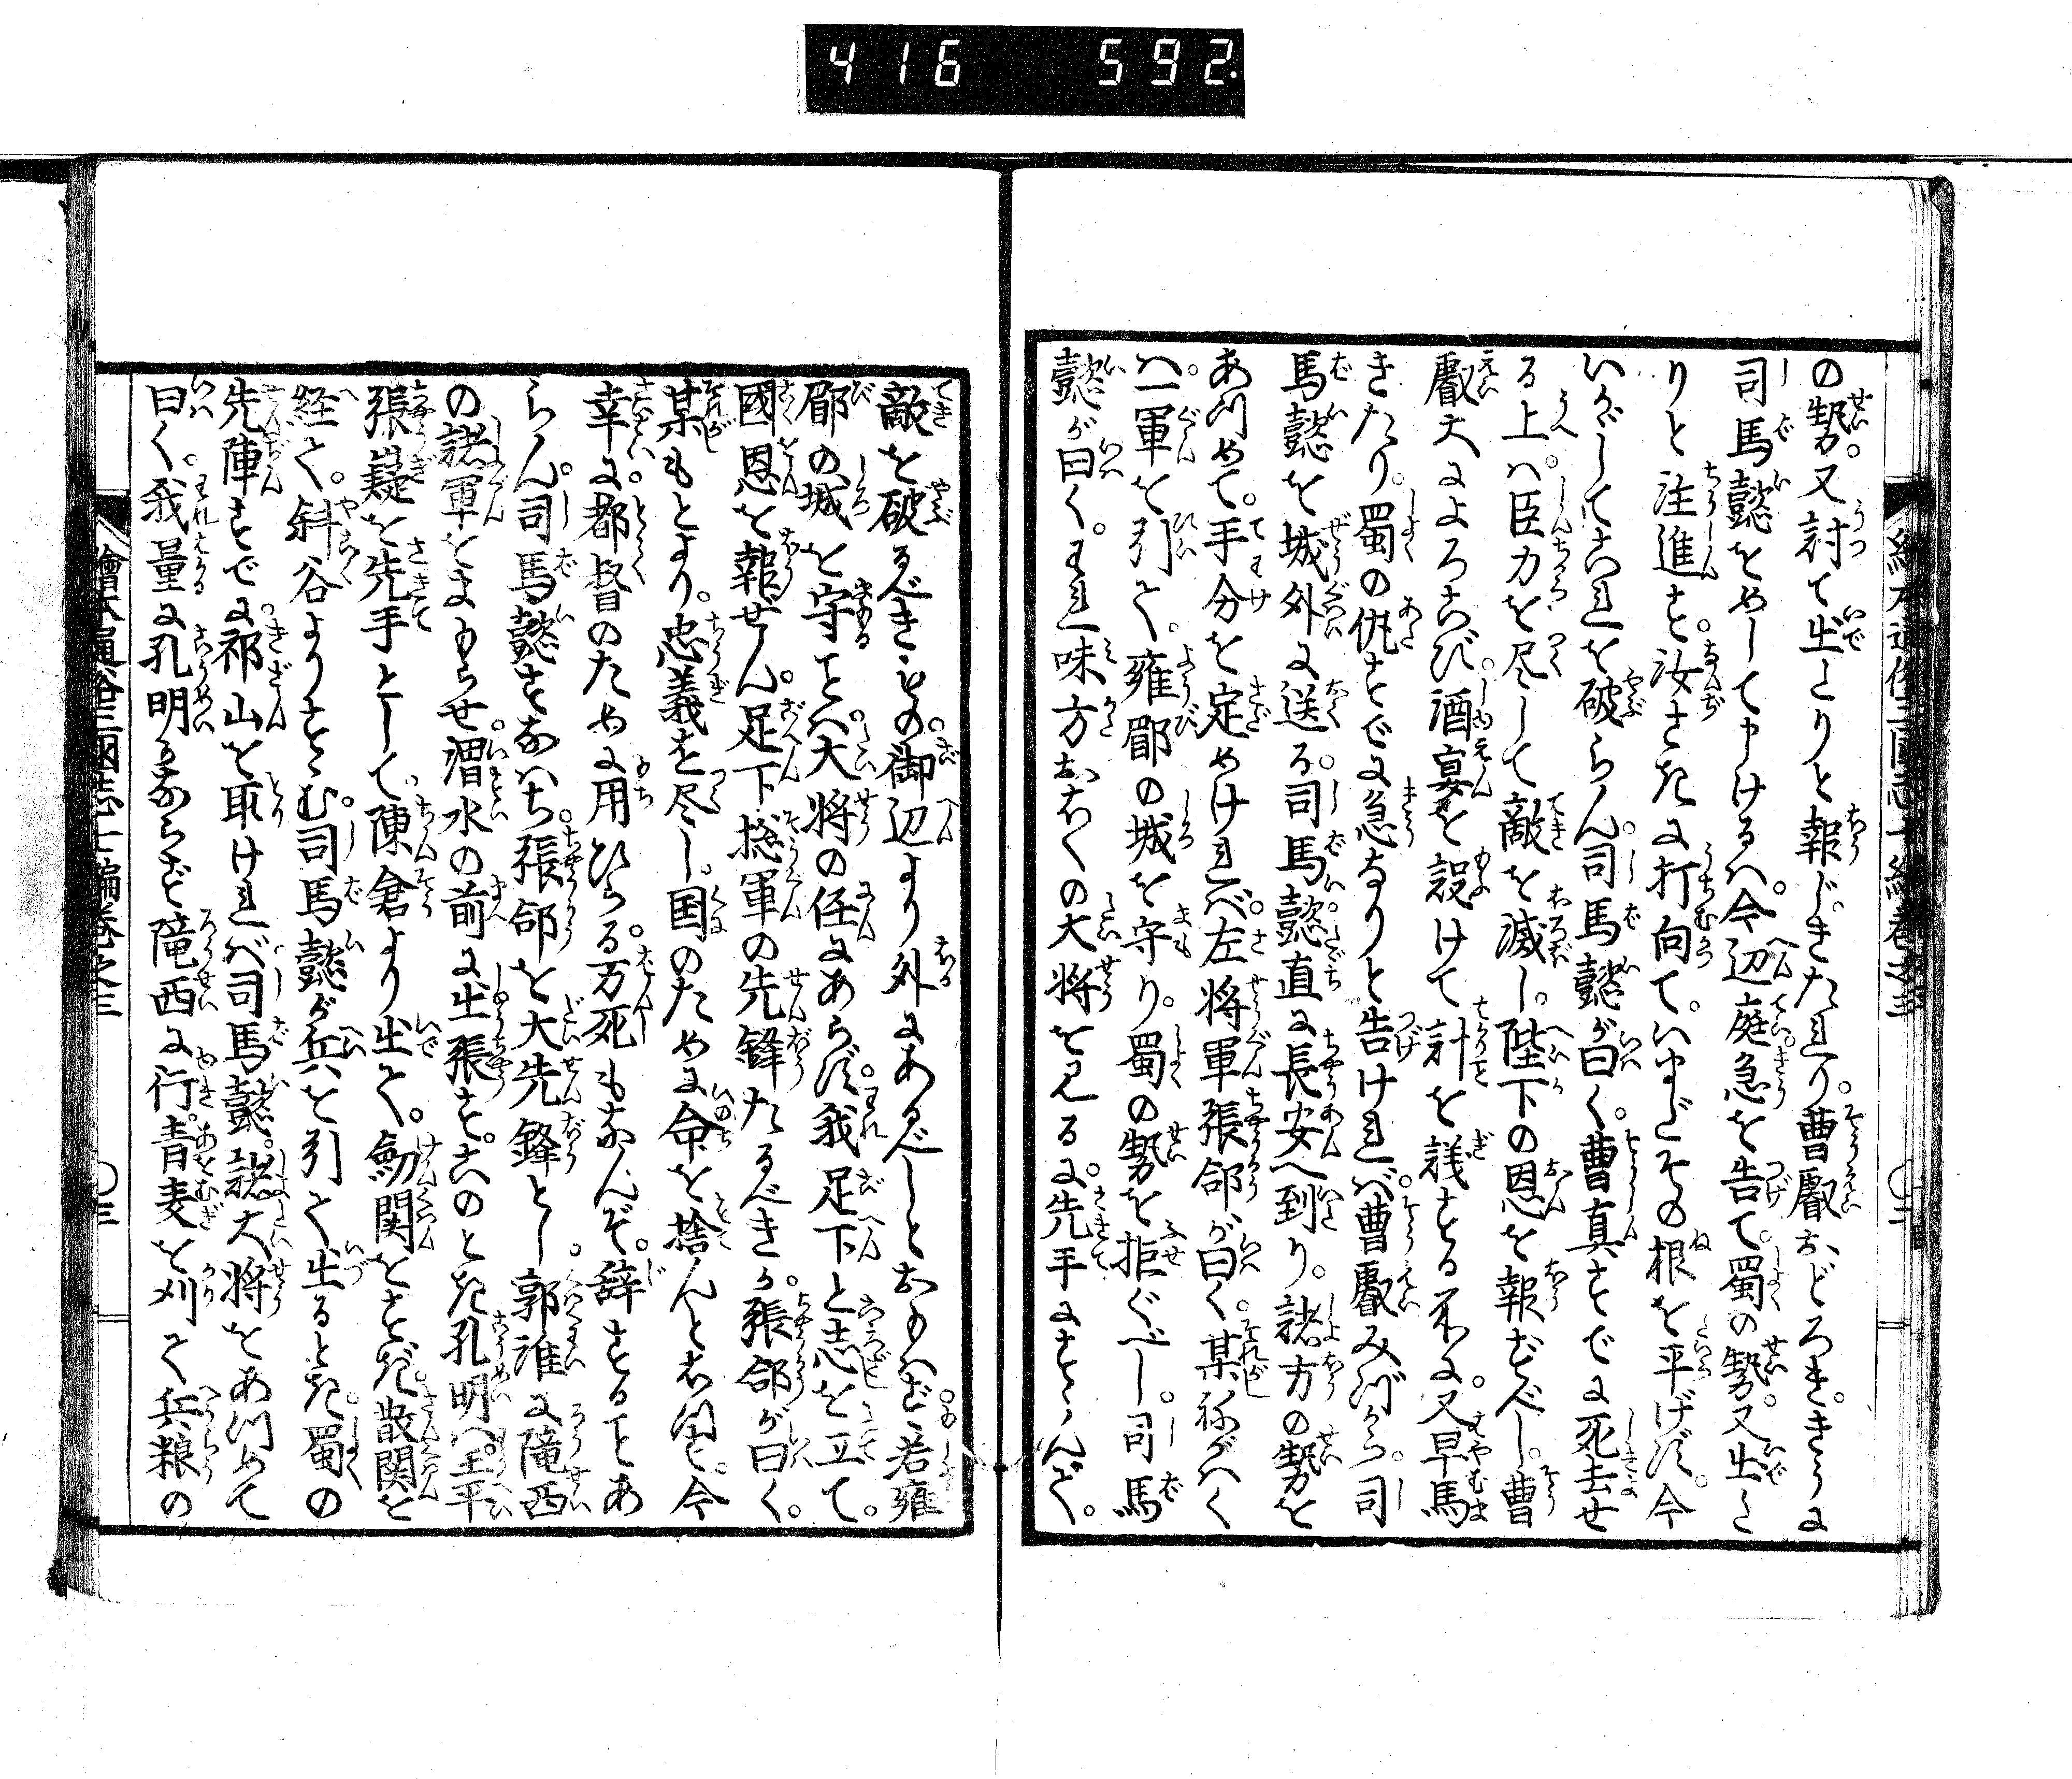 416 592
の勢。又討て出たりと報じきたれり。曹叡おどろき。きうに
司馬懿をめして申けるハ。今辺庭急を告て。蜀の勢。又出た
りと注進す。汝さきに打向て。いまだその根を平げず。今
いかゞしてこれを破らん。司馬懿が曰く。曹真すでに死去せ
る上ハ。臣力を尽して敵を滅し。陛下の恩を報ずべし。曹
叡大によろこび。酒宴を設けて計を議する所に。又早馬
きたり。蜀の仇すでに急なりと告けれバ。曹叡みづから。司
馬懿を城外に送る。司馬懿。直に長安へ到り。諸方の勢を
あつめて。手分を定めけれバ。左将軍張郃が曰く。某ねがハく
ハ。一軍を引て。雍郿の城を守り。蜀の勢を拒ぐべし。司馬
懿が曰く。われ味方おほくの大将を見るに。先手にすゝんで。
敵を破るべきもの。御辺より外にあるべしとおもハず。若雍
郿の城を守ることハ。大将の任にあらず。我足下と志を立て。
國恩を報ぜん。足下捴軍の先鋒たるべきか。張郃が曰く。
某もとより。忠義を尽し。国のために命を捨んとおもへり。今
幸に。都督のために用ひらる。万死もなんぞ。辞することあ
らん。司馬懿すなハち。張郃を大先鋒とし。郭淮に隴西
の諸軍をまもらせ。渭水の前に出張す。このとき孔明ハ。王平
張嶷を先手として。陳倉より出て。劔関をすぎ。散関を
経て。斜谷よりすゝむ。司馬懿が兵を引て出るとき。蜀の
先陣すでに。祁山を取けれバ。司馬懿。諸大将をあつめて
曰く。我量に孔明かならず隴西に行。青麦を刈て兵粮の
繪本通俗三國志七編巻之三 〇三